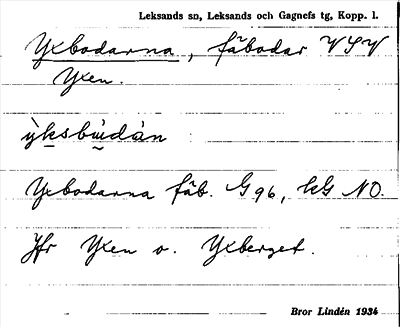 Leksands sn, Leksands och Gagnefs tg, Kopp. l.
Yxbodarna, fäbodar VSV
Yxen.
ỳksbùdàn
Yxbodarna fäb. G 96, kG NO.
Jfr Yxen o. Yxberget.
Bror Lindén 1934